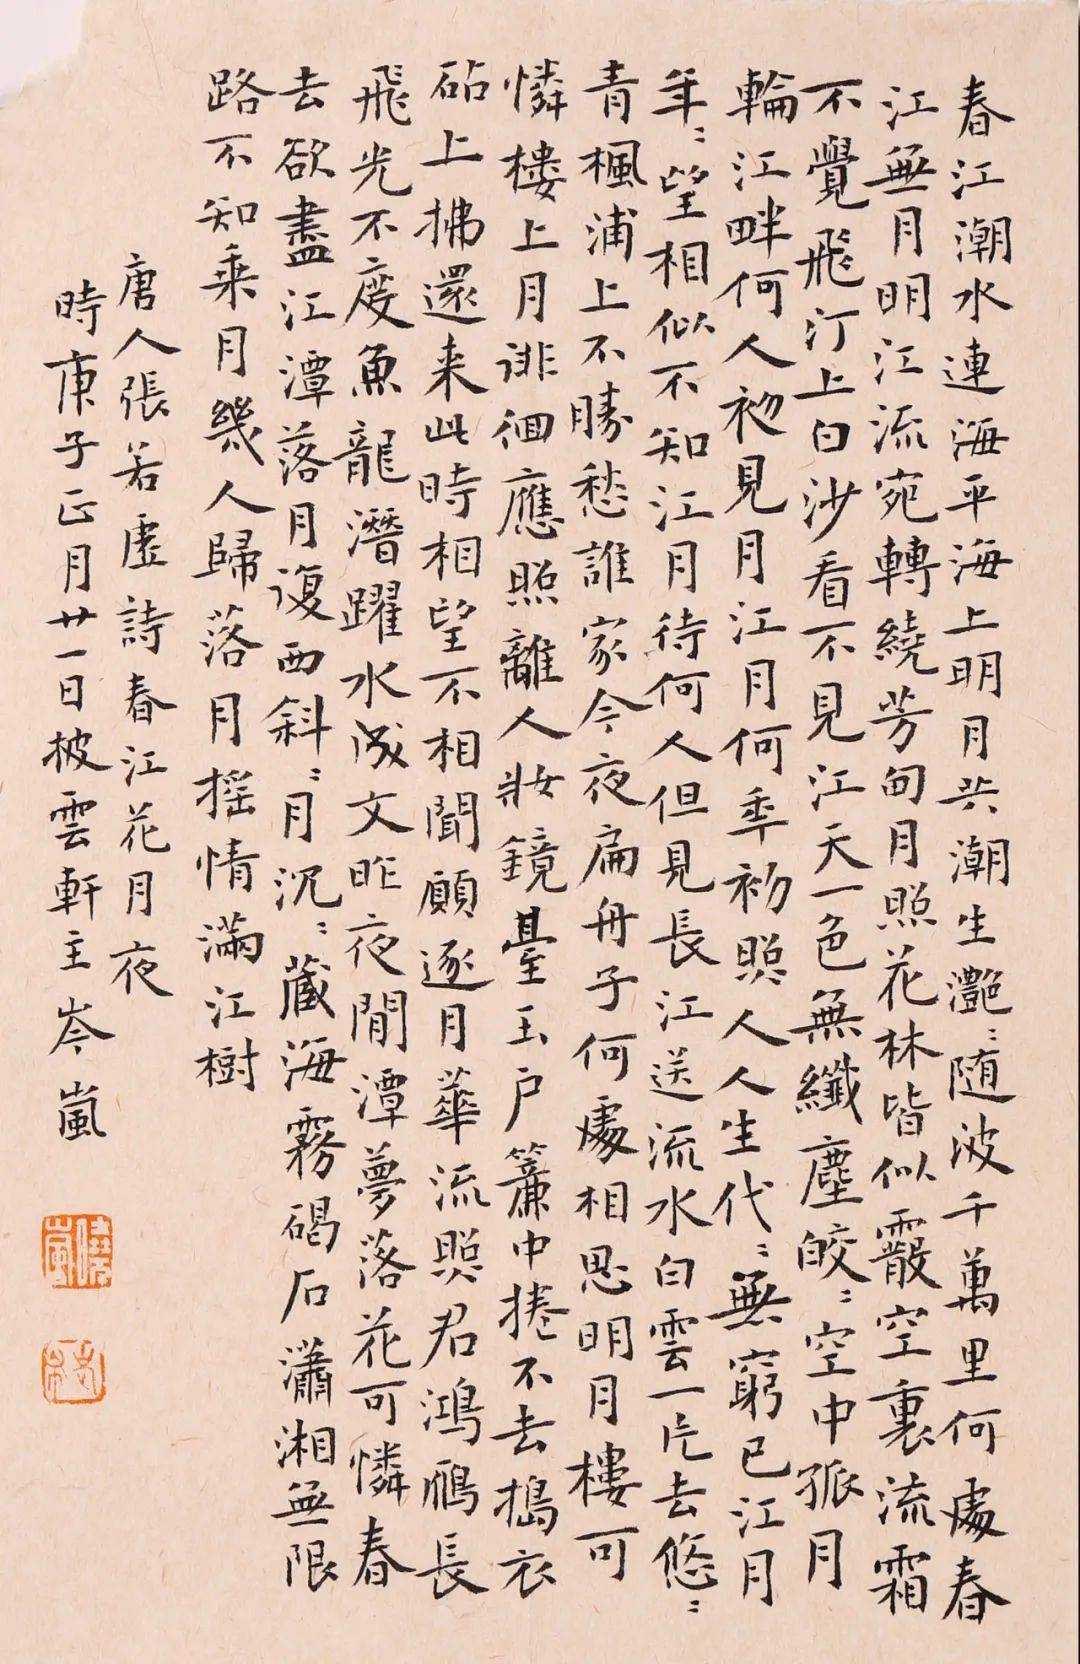 春江潮水連海平海上明月共潮生灔〻隨波千萬里何處春
江無月明江流宛轉繞芳甸月照花林皆似霰空裏流霜
不覺飛汀上白沙看不見江天一色無纖塵皎〻空中孤月
輪江畔何人初見月江月何年初照人人生代〻無窮已江月
年〻望相似不知江月待何人但見長江送流水白雲一片去悠〻
青楓浦上不勝愁誰家今夜扁舟子何處相思明月樓可
憐樓上月徘徊應照離人妝鏡臺玉戶簾中捲不去搗衣
砧上拂還来此時相望不相聞願逐月華流照君鴻鴈長
飛光不度魚龍潛躍水成文昨夜閒潭夢落花可憐春
去欲盡江潭落月復西斜〻月沉〻藏海霧碣石瀟湘無限
路不知乘月幾人歸落月摇情滿江樹
唐人張若虛詩春江花月夜
時庚子正月廿一日披雲軒主岑嵐